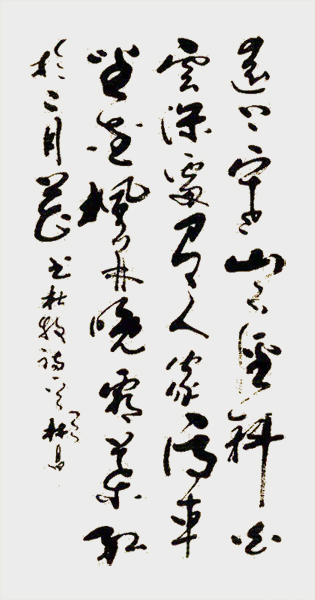 遠上寒山石徑斜白
雲深處有人家停車
坐愛楓林晚霜葉紅
於二月花 书杜牧詩一首